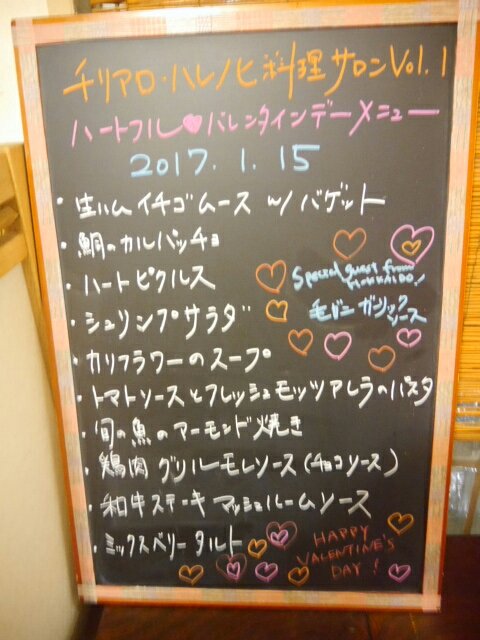 チリアロ・ハレノヒ料理サロンVol.1
ハートフル♥バレンタインデーメニュー
2017.1.15
・生ハムイチゴムース w/ バゲット
・鯛のカルパッチョ
・ハートピクルス
Special guest from HOKKAIDO!
・シュリンプサラダ
ガーリックソース
・カリフラワーのスープ
・トマトソースとフレッシュモッツアレラのパスタ
・旬の魚のアーモンド焼き
・鶏肉グリルモレソース(チョコソース)
・和牛ステーキマッシュルームソース
・ミックスベリータルト
HAPPY
VALENTINE'S
DAY!